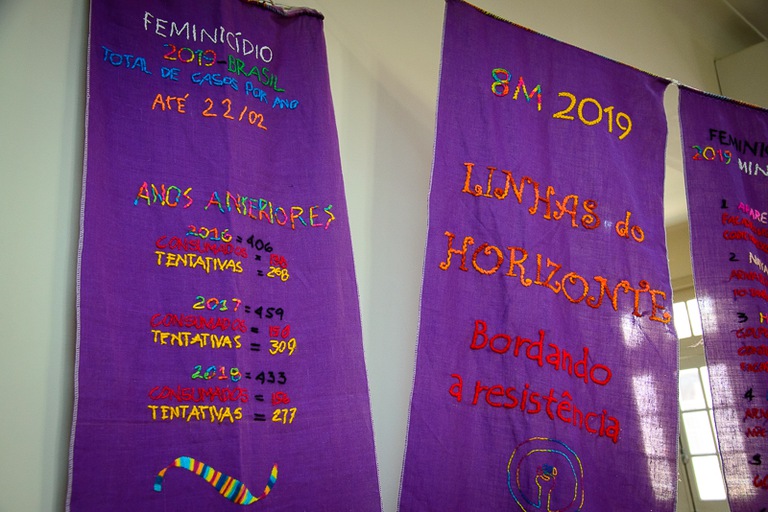 FEMINICÍDIO
2019-BRASIL
TOTAL DE CASOS POR ANO
ATÉ 22/02
ANOS ANTERIORES
2016 = 406
CONSUMADOS = 138
TENTATIVAS = 268
2017 = 459
CONSUMADOS = 150
TENTATIVAS = 309
2018 = 433
CONSUMADOS = 156
TENTATIVAS = 277
8M 2019
LINHAS do
HORIZONTE
Bordando
a resistência
FEMINIC
2019 MIN
1
2
3
4